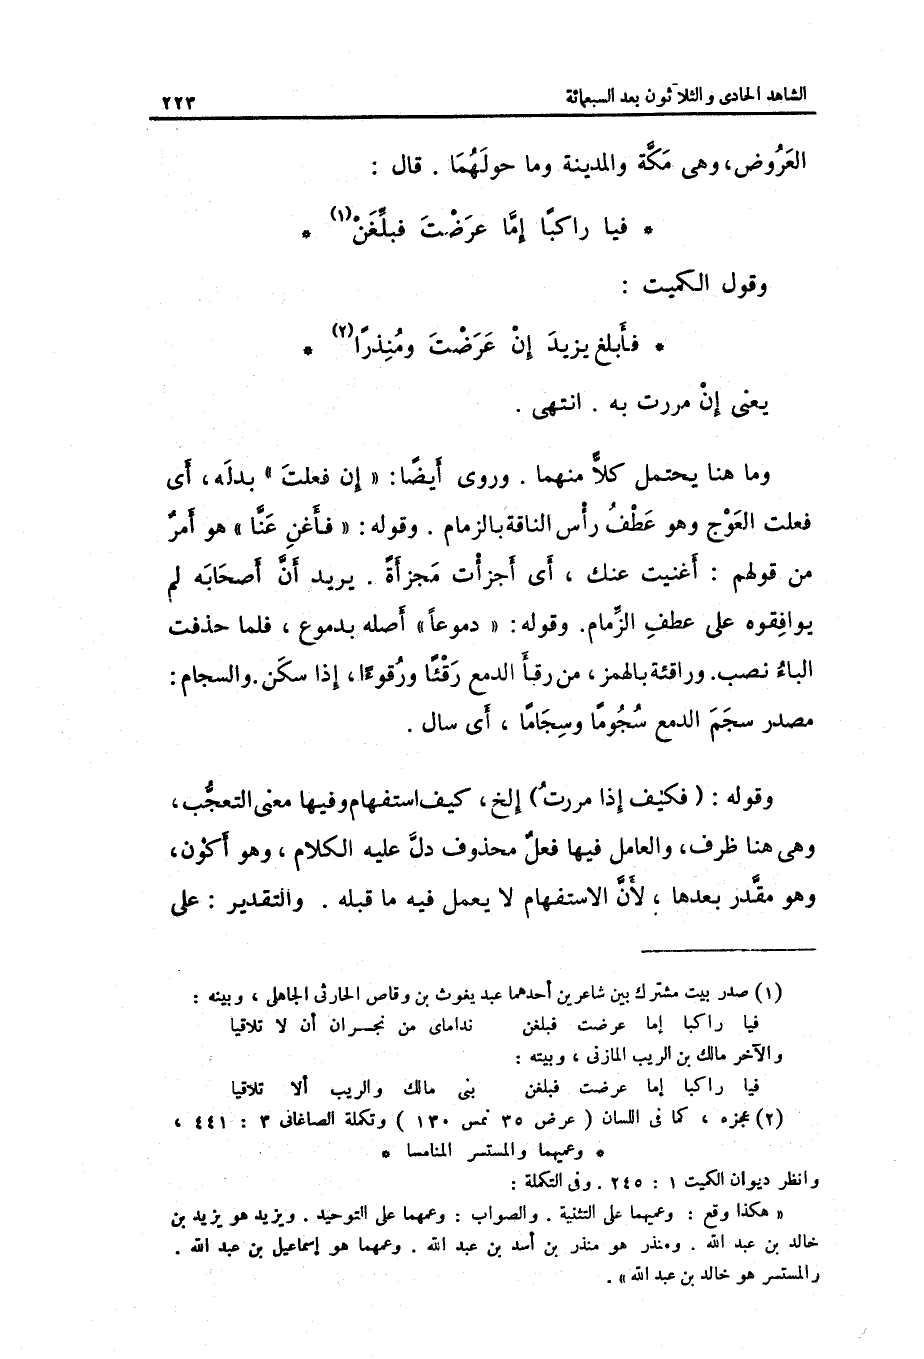 الشاهد الحادى والثلاثون بعد السبعمائة ٢٢٣
العَرُوض، وهى مَكَّة والمدينة وما حولَهُمَا . قال :
* فيا راكبًا إمَّا عرَضْتَ فبلِّغَنْ(١) *
وقول الكميت :
* فأَبلغ يزيدَ إنْ عَرَضْتَ ومُنِذرًا(٢) *
يعنى إنْ مررت به . انتهى .
وما هنا يحتمل كلاًّ منهما . وروى أَيضًا: « إن فعلتَ » بدلَه، أَى
فعلت العَوْج وهو عَطْفُ رأْس الناقة بالزمام . وقوله: « فأَغنِ عَنَّا » هو أَمرٌ
من قولهم : أَغنيت عنك ، أَى أَجزأْت مَجزأَةً . يريد أَنَّ أَصحَابَه لم
يوافِقوه على عطفِ الزِّمام. وقوله: « دموعاً» أَصله بدموع ، فلما حذفت
الباءُ نصب. وراقئة بالهمز، من رقأَ الدمع رَقْئًا ورُقوءًا، إذا سكَن. والسجام:
مصدر سجَمَ الدمع سُجُومًا وسِجَامًا ، أَى سال .
وقوله : ( فكيْف إذا مررتُ ) إلخ، كيف استفهام وفيها معنى التعجُّب،
وهى هنا ظرف، والعامل فيها فعلٌ محذوف دلَّ عليه الكلام ، وهو أَكوْن،
وهو مقَّدر بعدها ؛ لأَنَّ الاستفهام لا يعمل فيه ما قبله . والتقدير : على
(١) صدر بيت مشترك بين شاعرين أحدهما عبد يغوث بن وقاص الحارثى الجاهلى ، وبيته :
فيا راكبا إما عرضت فبلغن نداماى من نجران أن لا تلاقيا
والآخر مالك بن الريب المازنى ، وبيته :
فيا راكبا إما عرضت فبلغن بنى مالك والريب ألا تلاقيا
(٢) عجزه ، كما فى اللسان ( عرض ٣٥ نمس ١٣٠ ) وتكملة الصاغانى ٣ : ٤٤١ ،
* وعميهما والمستسر المنامسا *
وانظر ديوان الكميت ١ : ٢٤٥ . وفى التكملة :
« هكذا وقع : وعميهما على التثنية . والصواب : وعمهما على التوحيد . ويزيد هو يزيد بن
خالد بن عبد الله . ومنذر هو منذر بن أسد بن عبد الله . وعمهما هو إسماعيل بن عبد الله .
والمستسر هو خالد بن عبد الله » .